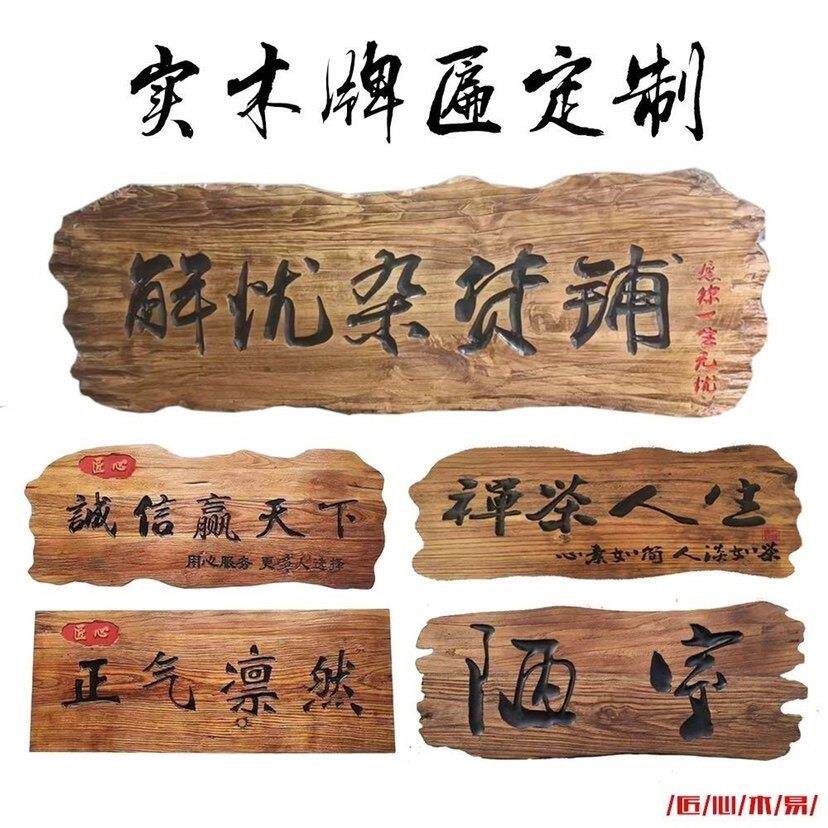 实木牌匾定制
解忧杂货铺
愿你一生无忧
匠心
誠信赢天下
用心服务 更多人选择
禪茶人生
心素如简 人淡如茶
匠心
正气凛然
陋室
/匠/心/木/易/